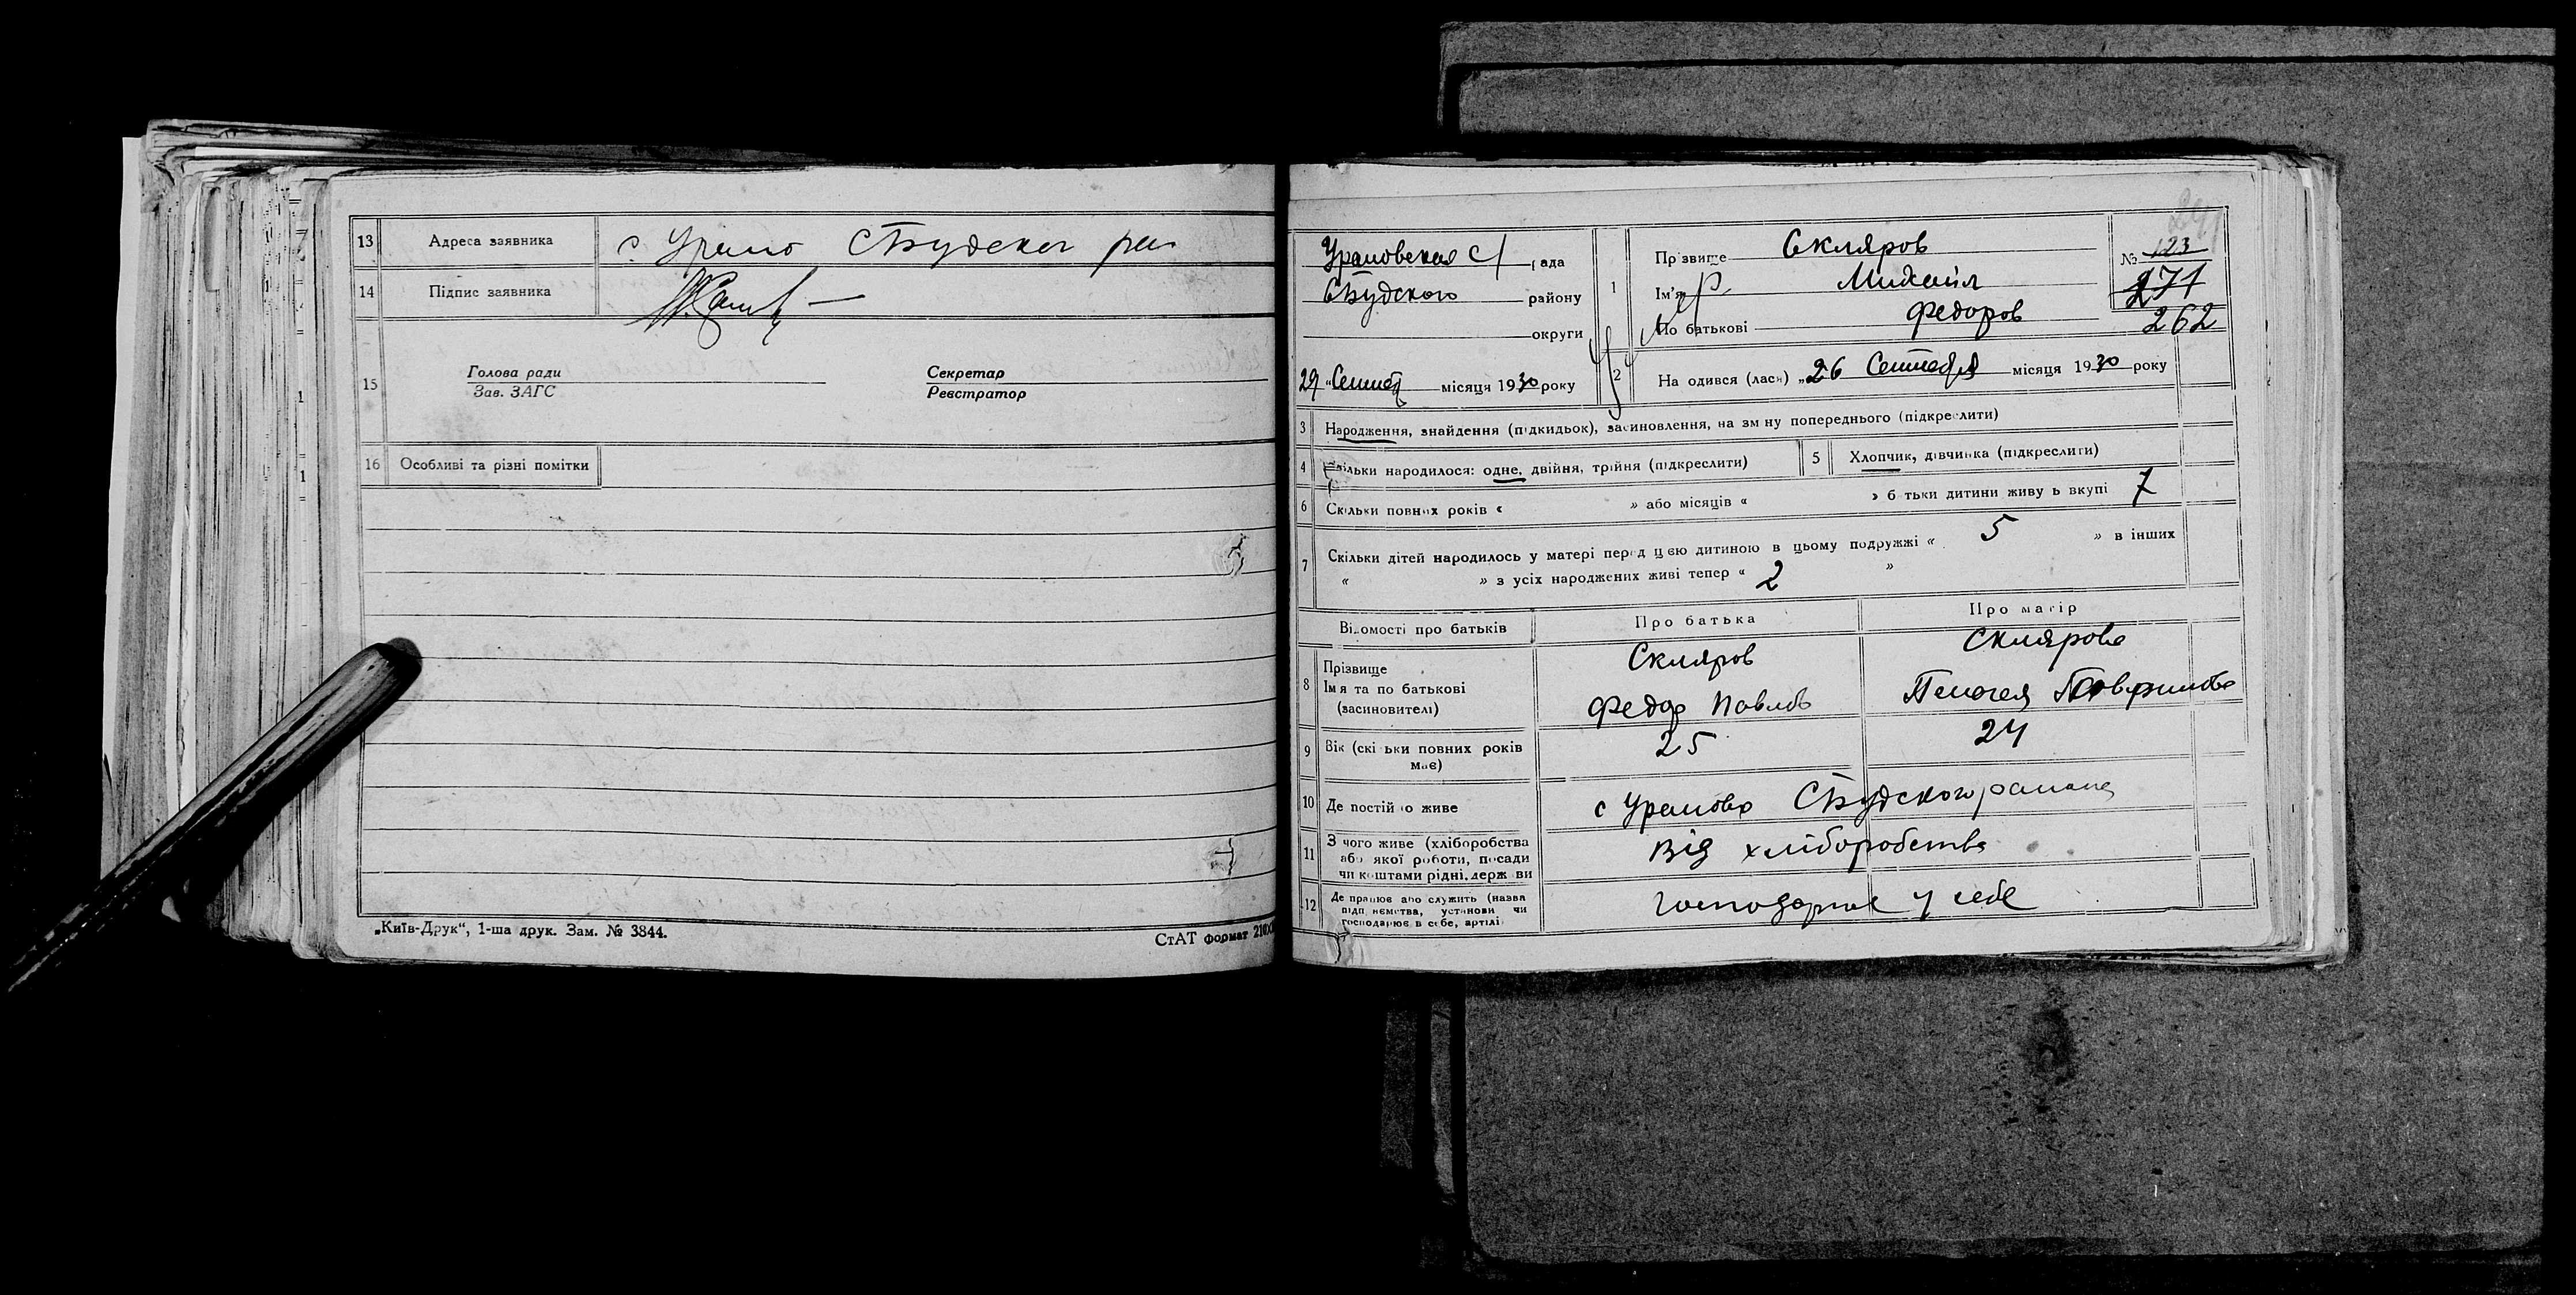 13 Адреса заявника с. Урамо СтБудског рай
14 Підпис заявника
15 Голова ради Секретар
Зав. ЗАГС Реєстратор
16 Особливі та різні помітки
„Київ-Друк“, 1-ша друк. Зам. № 3844.
СтАТ формат 210X
Урамовская С/ рада
СтБудского району
округи
29 „Сентяб місяця 1930 року
1 Прізвище Скляров
Ім'я Михаил
По батькові Федоров
№ 123
271
262
2 На одився (лась) „26 Сентября місяця 1930 року
3 Народження, знайдення (підкидьок), засиновлення, на зм ну попереднього (підкреслити)
4 Скільки народилося: одне, двійня, трійня (підкреслити)
5 Хлопчик, дівчинка (підкреслити)
6 Скільки повних років « » або місяців « » б тьки дитини живу ь вкупі 7
7 Скільки дітей народилось у матері перед цею дитиною в цьому подружжі « 5 » в інших
« » з усіх народжених живі тепер « 2 »
Відомості про батьків Про батька Про матір
8 Прізвище Скляров Склярова
Імя та по батькові
(засиновителі) Федор Павлов Пелагея
9 Вік (скі ьки повних років має) 25 24
10 Де постій о живе с Урамово СтБудского района
11 З чого живе (хліборобства
або якої роботи, посади
чи коштами рідні, держ ви від хліборобства
12 Де працює або служить (назва
підп иємства, установи чи
господарює в себе, артілі господарює у себе